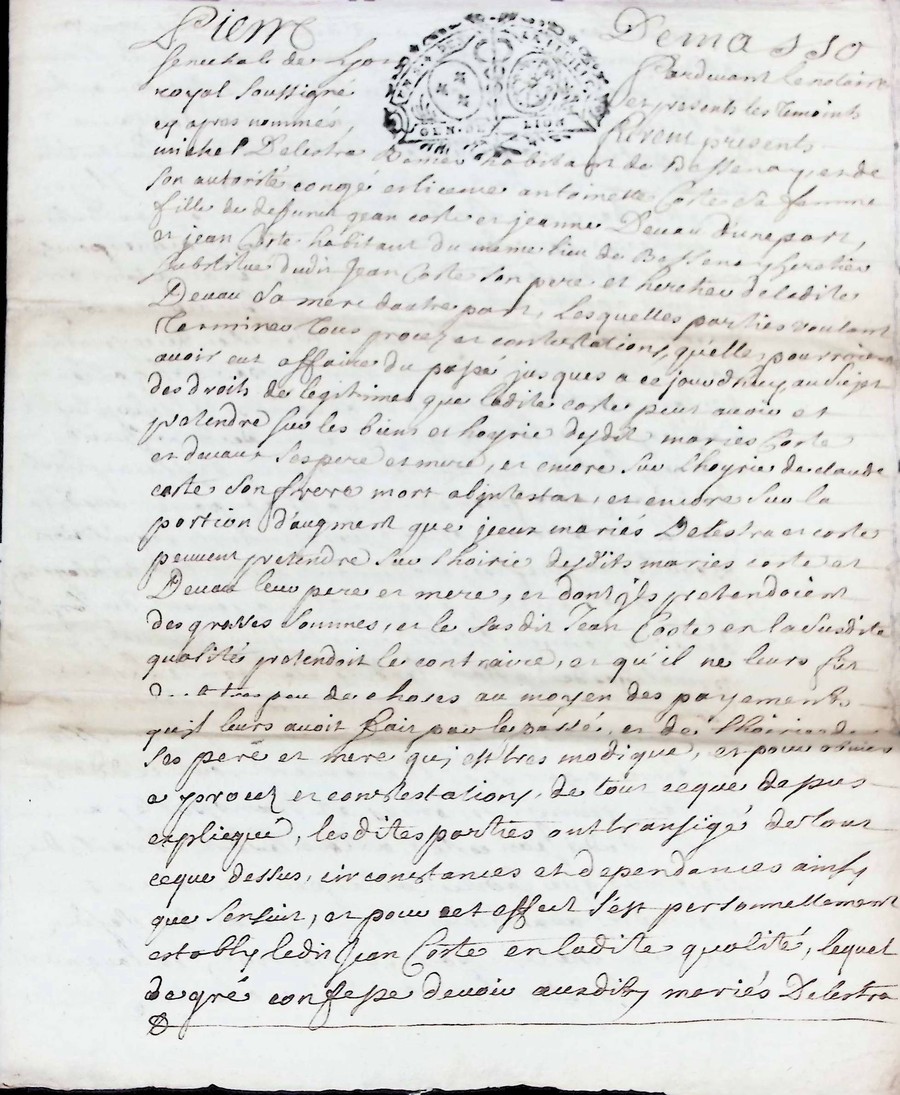 Pierre Demasso
senechal de Lyon Pardevant le notaire
royal soussigné et presents les temoints
cy apres nommés, furent presents
michel Delestra habitant de Bessenay, et de
son autorité congé et licence antoinette Corte sa femme
fille de defunct jean corte et jeanne Devau d'une part,
et jean Corte habitant du meme lieu de Bessenay heretier
substitue dudit Jean Corte son pere et heretier de ladite
Devau sa mere dautre part, lesquelles parties voulant
terminer tous procez et contestations, qu'elles pourroient
avoir eut affaire du passé jusques a ce jourdhuy au sujet
des droits de legitimes que ladite corte peut avoir et
pretendre sur les biens et hoyrie desdit mariés Corte
et devaux ses pere et mere, et encore sur l'hoyrie de claude
corte son frere mort abintestat, et encore sur la
portion d'augment que iceux mariés Delestra et corte
peuvent pretendre sur l'hoirie desdits mariés corte et
Devau leur pere et mere, et dont ils pretendoient
des grosses sommes, et le susdit Jean Corte en la susdite
qualité pretendoit le contraire, et qu'il ne leurs fut
tres peu de choses au moyen des payements
qu'il leurs avoit fait par le passé, et de l'hoirie de
ses pere et mere qui est tres modique, et pour obvier
a procez et contestations, de tout ceque depus
expliequé, lesdites parties ont transigé de tout
ceque dessus, circonstances et dependances ainsy
que sensuit, et pour cet effect s'est personnellement
estably ledit Jean Corte en ladite qualité, lequel
de gré confesse devoir ausdits mariés Delestra
GEN. DE LION